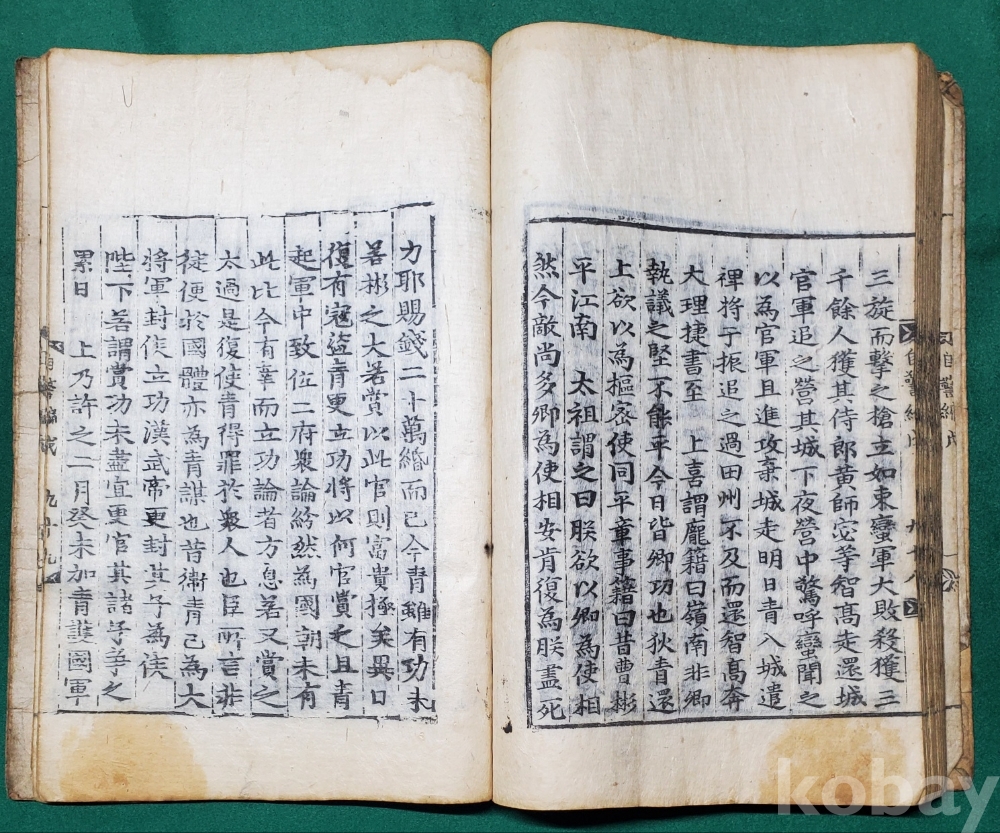 三旋而擊之槍立如束蠻軍大敗殺獲三
千餘人獲其侍郎黃師宓等智高走還城
官軍追之營其城下夜營中驚呼蠻聞之
以為官軍且進攻棄城走明日青入城遣
裨將于振追之過田州不及而還智高奔
大理捷書至　上喜謂龐籍曰嶺南非卿
執議之堅不能平今日皆卿功也狄青還
上欲以為樞密使同平章事籍曰昔曹彬
平江南　太祖謂之曰朕欲以卿為使相
然今敵尚多卿為使相安肯復為朕盡死
力耶賜錢二十萬緡而已今青雖有功未
若彬之大若賞以此官則富貴極矣異日
復有寇盜青更立功將以何官賞之且青
起軍中致位二府衆論紛然為國朝未有
此比今有幸而立功論者方息若又賞之
太過是復使青得罪於衆人也臣所言非
徒便於國體亦為青謀也昔衛青已為大
將軍封侯立功漢武帝更封其子為侯
陛下若謂賞功未盡宜更官其諸子爭之
累日　上乃許之二月癸未加青護國軍
自警編戊
九十八
自警編戊
九十九
kobay